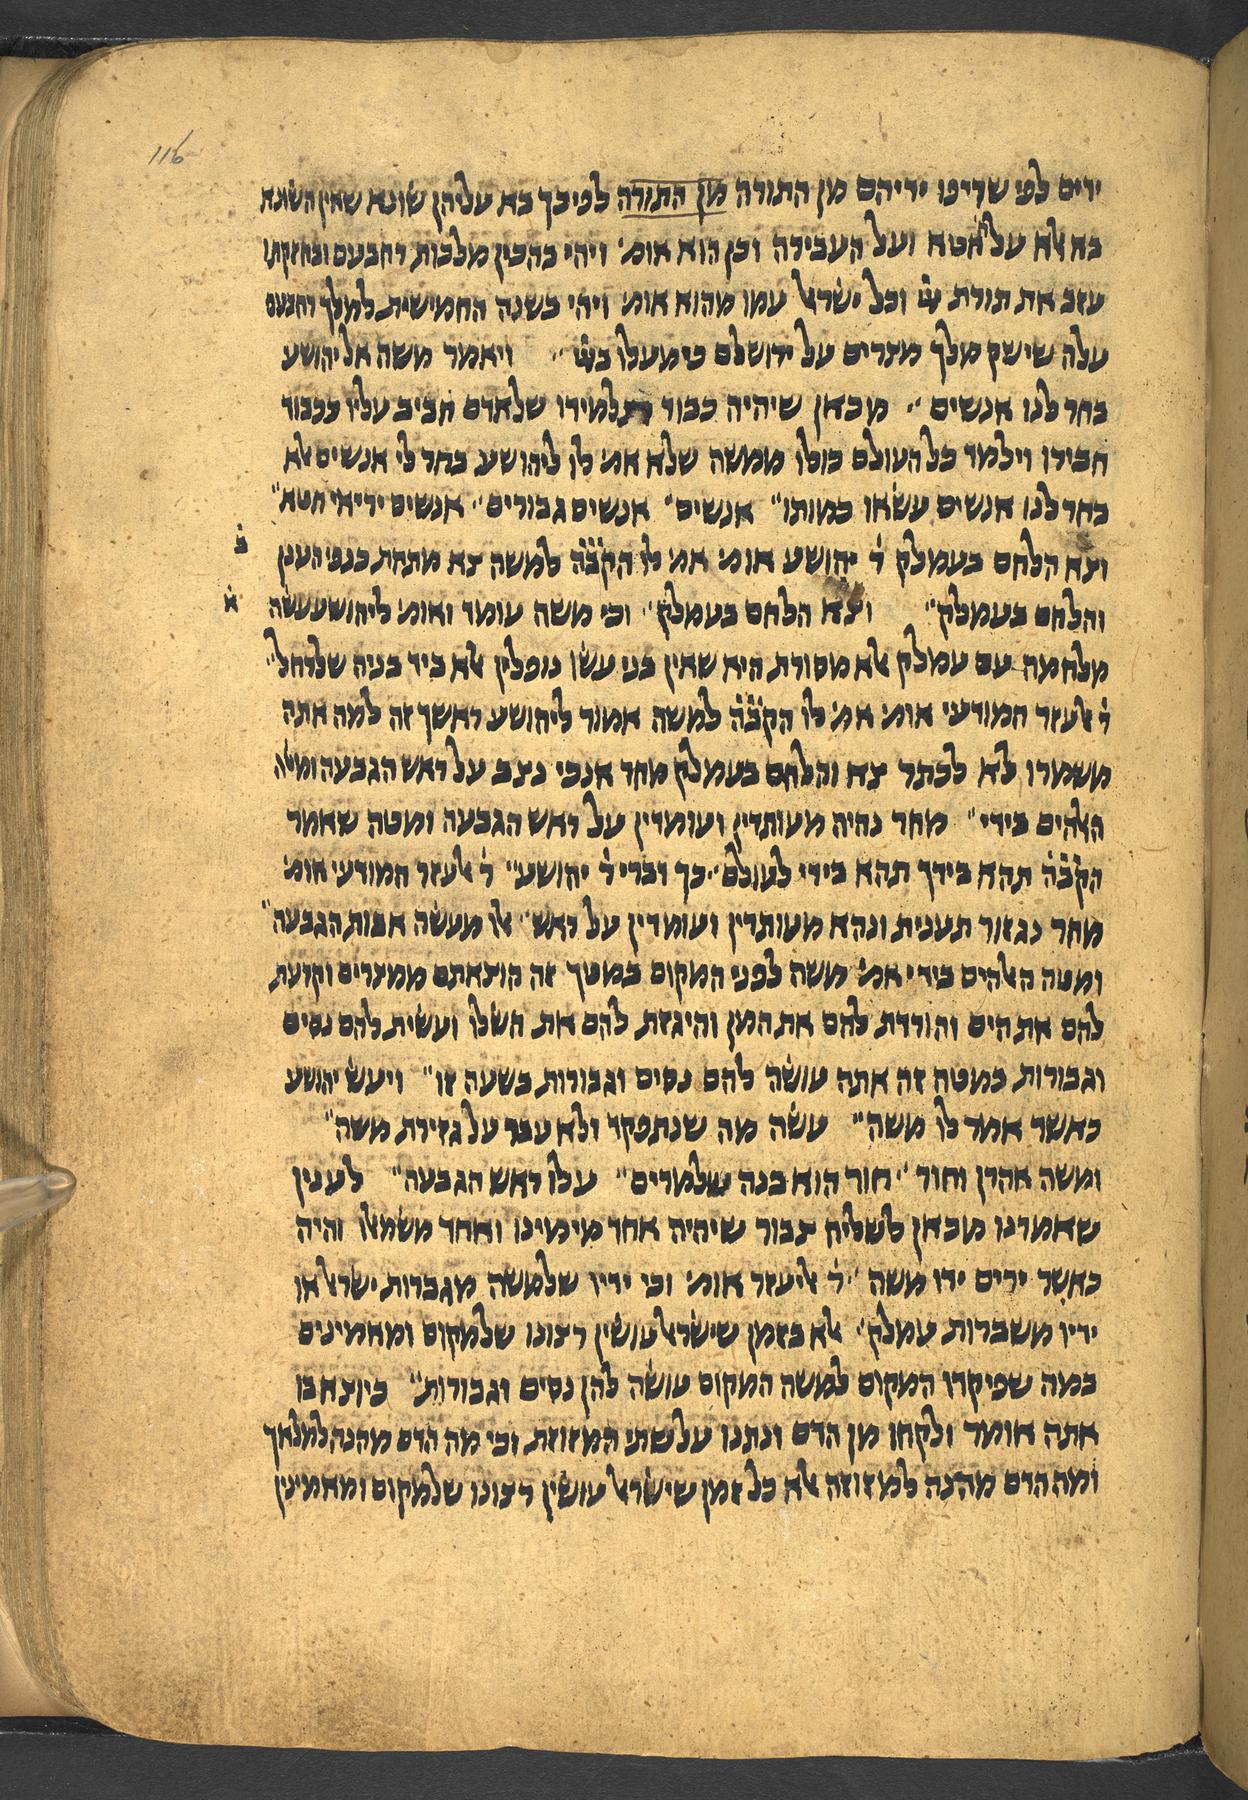 116
ידים לפי שריפו ידיהם מן התורה מן התורה לפיכך בא עליהן שונא שאין השונא
בא אלא על חטא ועל העבירה וכן הוא אומ׳ ויהי כהכין מלכות רחבעם ובחזקתו
עזב את תורת יי׳ וכל ישראל עמו מהוא אומ׳ ויהי בשנה החמישית למלך רחבעם
עלה שישק מלך מצרים על ירושלם כי מעלו ביי׳ ״ ויאמר משה אל יהושע
בחר לנו אנשים ״ מכאן שיהיה כבוד תלמידו שלאדם חביב עליו ככבוד
חבירו וילמד כל העולם כולו ממשה שלא אמ׳ לו ליהושע בחר לי אנשים אלא
בחר לנו אנשים עשאו כמותו״ אנשים״ אנשים גבורים״ אנשים יריאי חטא״
וצא הלחם בעמלק ר׳ יהושע אומ׳ אמ׳ לו הקב״ה למשה צא מתחת כנפי הענן
ב
והלחם בעמלק״ וצא הלחם בעמלק״ וכי משה עומד ואומ׳ ליהושע עשה
א
מלחמה עם עמלק אלא מסורת היא שאין בני עשו נופלין אלא ביד בניה שלרחל״
ר׳ אלעזר המודעי אומ׳ אמ׳ לו הקב״ה למשה אמור ליהושע ראשך זה למה אתה
משמרו לא לכתר צא והלחם בעמלק מחר אנכי נצב על ראש הגבעה ומטה
האלהים בידי״ מחר נהיה מעותדין ועומדין על ראש הגבעה ומטה שאמר
הקב״ה תהא בידך תהא בידי לעולם״ כך דברי ר׳ יהושע״ ר׳ אלעזר המודעי אומ׳
מחר נגזור תענית ונהא מעותדין ועומדין על ראש״ אלו מעשה אבות הגבעה״
ומטה האלהים בידי אמ׳ משה לפני המקום במטך זה הוצאתם ממצרים וקרעת
להם את הים והורדת להם את המן והיגזת להם את השלו ועשית להם נסים
וגבורות במטה זה אתה עושה להם נסים וגבורות בשעה זו״ ויעש יהושע
כאשר אמר לו משה״ עשה מה שנתפקד ולא עבר על גזירת משה״
ומשה אהרן וחור״ חור הוא בנה שלמרים״ עלו ראש הגבעה״ לענין
שאמרנו מכאן לשליח צבור שיהיה אחד מימינו ואחד משמאלו והיה
כאשר ירים ידו משה״ ר׳ אליעזר אומ׳ וכי ידיו שלמשה מגברות ישראל או
ידיו משברות עמלק״ אלא בזמן שישראל עושין רצונו שלמקום ומאמינים
במה שפיקדו המקום למשה המקום עושה להן נסים וגבורות״ כיוצא בו
אתה אומר ולקחו מן הדם ונתנו על שתי המזוזת וכי מה הדם מהנה למלאך
ומה הדם מהנה למזוזה אלא כל זמן שישראל עושין רצונו שלמקום ומאמינין